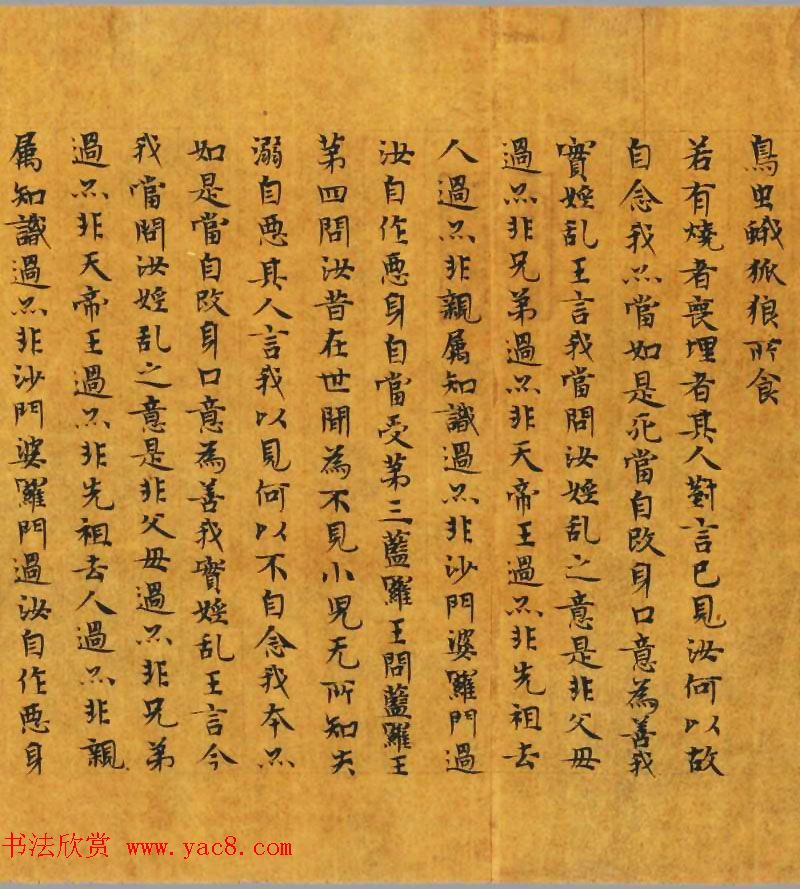 鳥虫蛾狐狼所食
若有燒者喪埋者其人對言已見汝何以故
自念我亦當如是死當自改身口意為善我
實婬乱王言我當問汝婬乱之意是非父母
過亦非兄弟過亦非天帝王過亦非先祖去
人過亦非親属知識過亦非沙門婆羅門過
汝自作惡身自當受第三藍羅王問藍羅王
第四問汝昔在世間為不見小兒无所知夫
溺自惡其人言我以見何以不自念我本亦
如是當自改身口意為善我實婬乱王言今
我當問汝婬乱之意是非父母過亦非兄弟
過亦非天帝王過亦非先祖去人過亦非親
属知識過亦非沙門婆羅門過汝自作惡身
书法欣赏 www.yac8.com